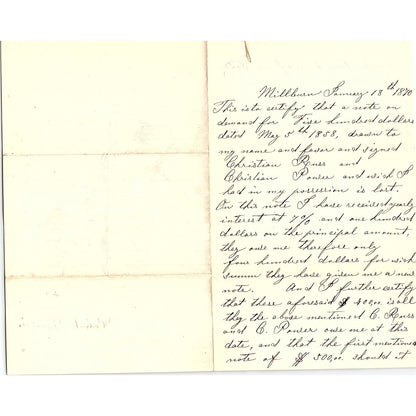 Millburn January 18th 1870
This is to certify that a note on
demand for Five hundred dollars
dated May 5th 1858, drawn to
my name and favor and signed
Christian Russ and
Christian Power and wich I
had in my possession is lost.
On this note I have received yearly
interest at 7% and one hundred
dollars on the principal amount,
they owe me therefore only
four hundred dollars for wich
summ they have given me a new
note. And I further certify
that these aforesaid $ 400,00 is all
they the above mentioned C. Russ
and C. Power owe me at this
date, and that the first mentioned
note of $ 500,00 should it